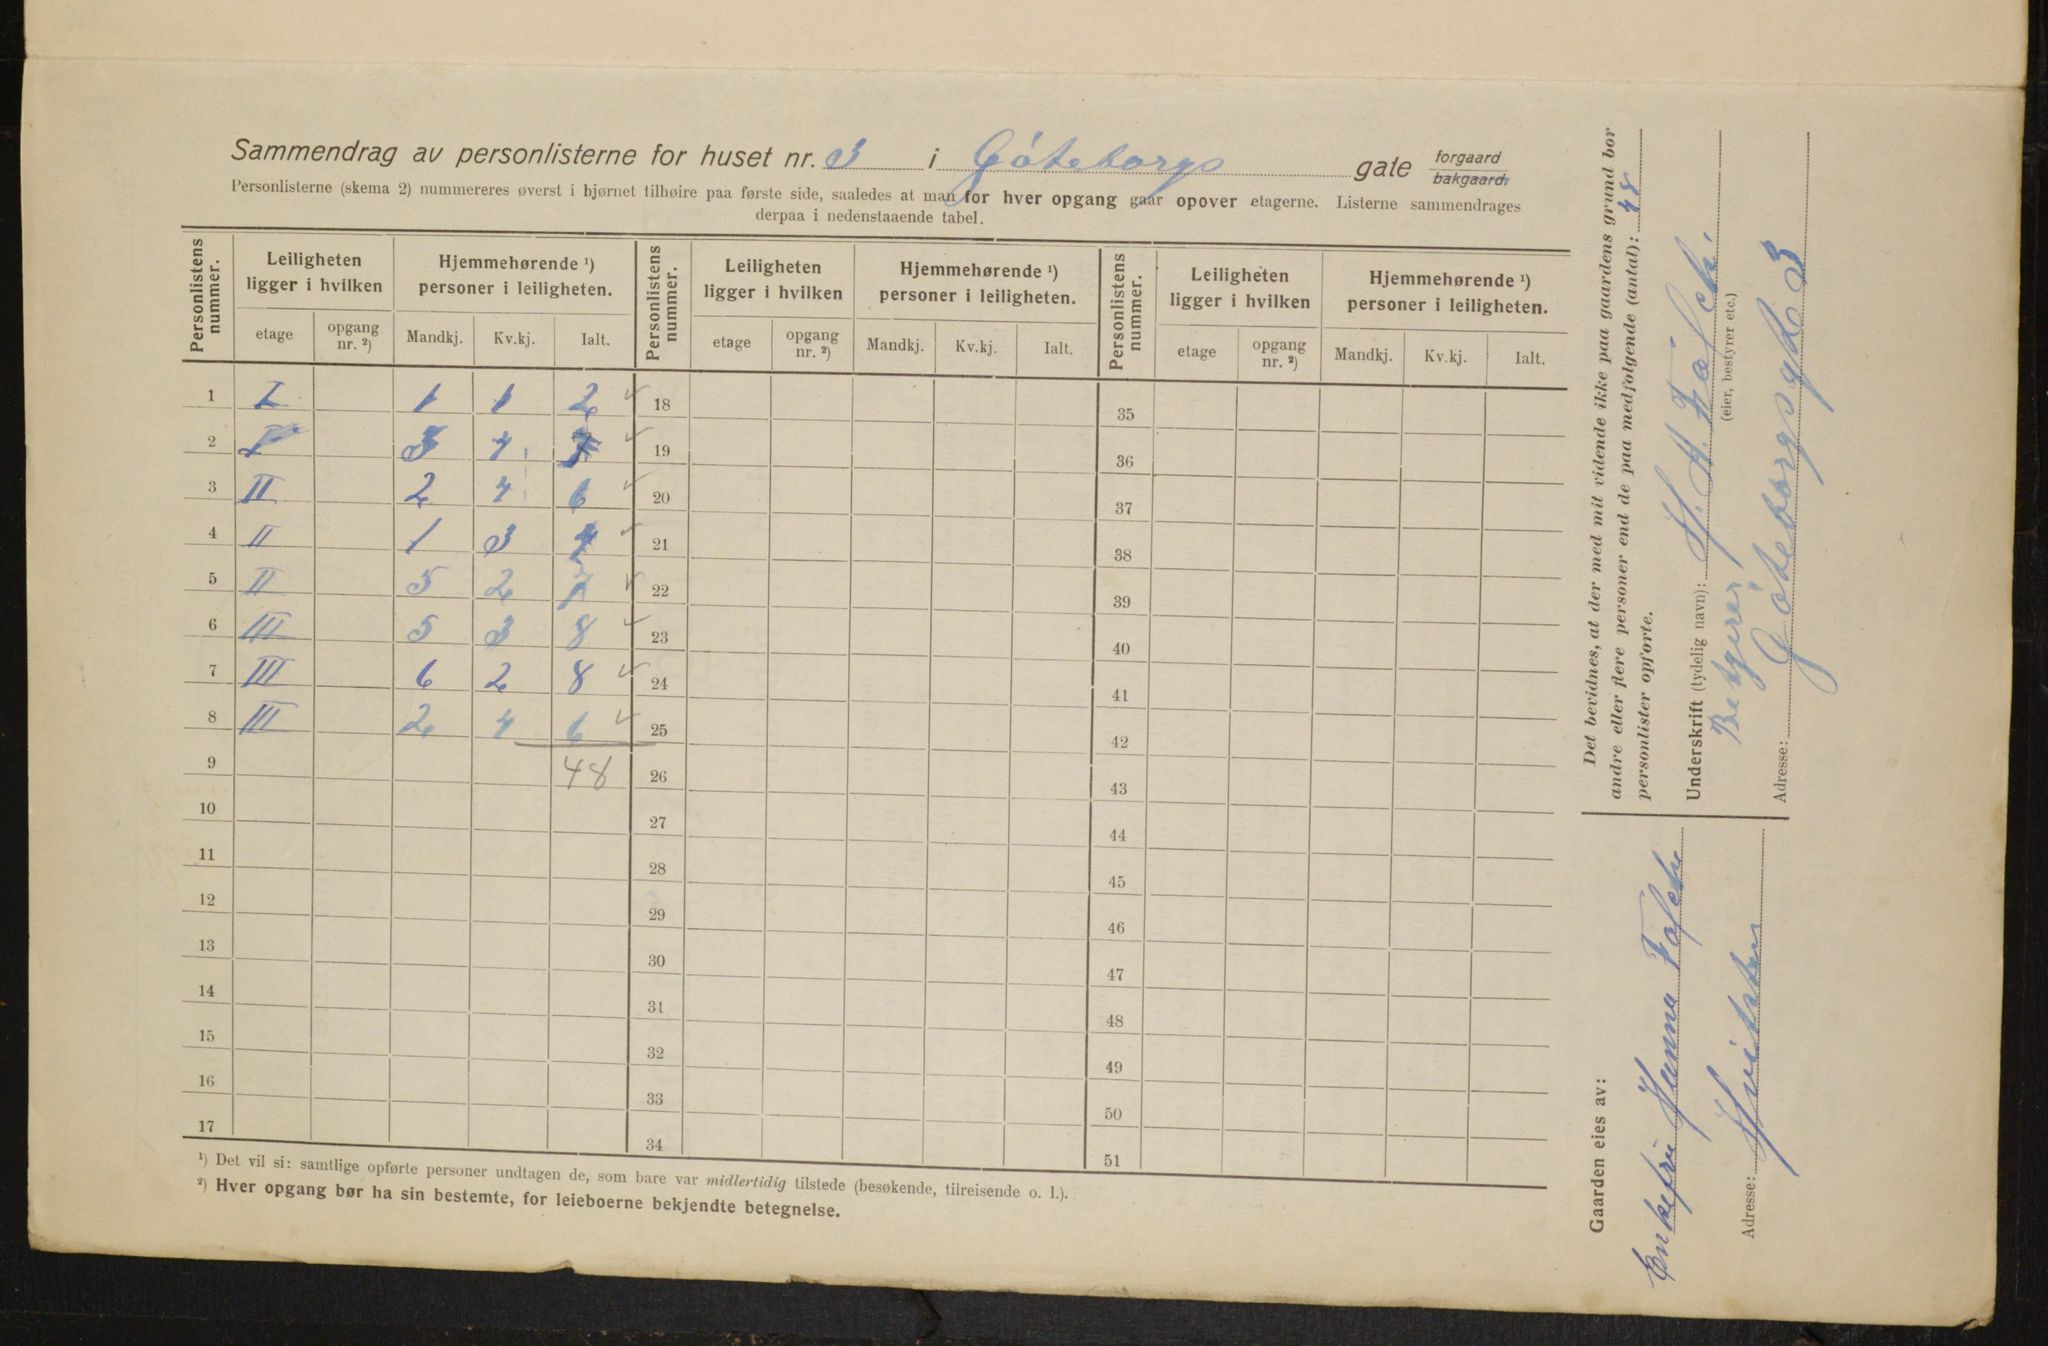 Sammendrag av personlisterne for huset nr. 3 i Göteborgs gate forgaard bakgaard.
Personlisterne (skema 2) nummereres øverst i hjørnet tilhøire paa første side, saaledes at man for hver opgang gaar opover etagerne. Listerne sammendrages
derpaa i nedenstaaende tabel.
Personlistens nummer. Leiligheten ligger i hvilken Hjemmehørende ¹) personer i leiligheten. Personlistens nummer. Leiligheten ligger i hvilken Hjemmehørende ¹) personer i leiligheten. Personlistens nummer. Leiligheten ligger i hvilken Hjemmehørende ¹) personer i leiligheten.
etage opgang nr. ²) Mandkj. Kv.kj. Ialt. etage opgang nr. ²) Mandkj. Kv.kj. Ialt. etage opgang nr. ²) Mandkj. Kv.kj. Ialt.
1 I 1 1 2 18 35
2 I 3 4 7 19 36
3 II 2 4 6 20 37
4 II 1 3 4 21 38
5 II 5 2 7 22 39
6 III 5 3 8 23 40
7 III 6 2 8 24 41
8 III 2 4 6 25 42
9 48 26 43
10 27 44
11 28 45
12 29 46
13 30 47
14 31 48
15 32 49
16 33 50
17 34 51
¹) Det vil si: samtlige opførte personer undtagen de, som bare var midlertidig tilstede (besøkende, tilreisende o. l.).
²) Hver opgang bør ha sin bestemte, for leieboerne bekjendte betegnelse.
Det bevidnes, at der med mit vidende ikke paa gaardens grund bor
andre eller flere personer end de paa medfølgende (antal): 48
personlister opførte.
Underskrift (tydelig navn):
Bestyrer (eier, bestyrer etc.)
Adresse: Göteborgsgt. 3
Gaarden eies av:
Enkefru Hanna
Adresse: Hvitsten